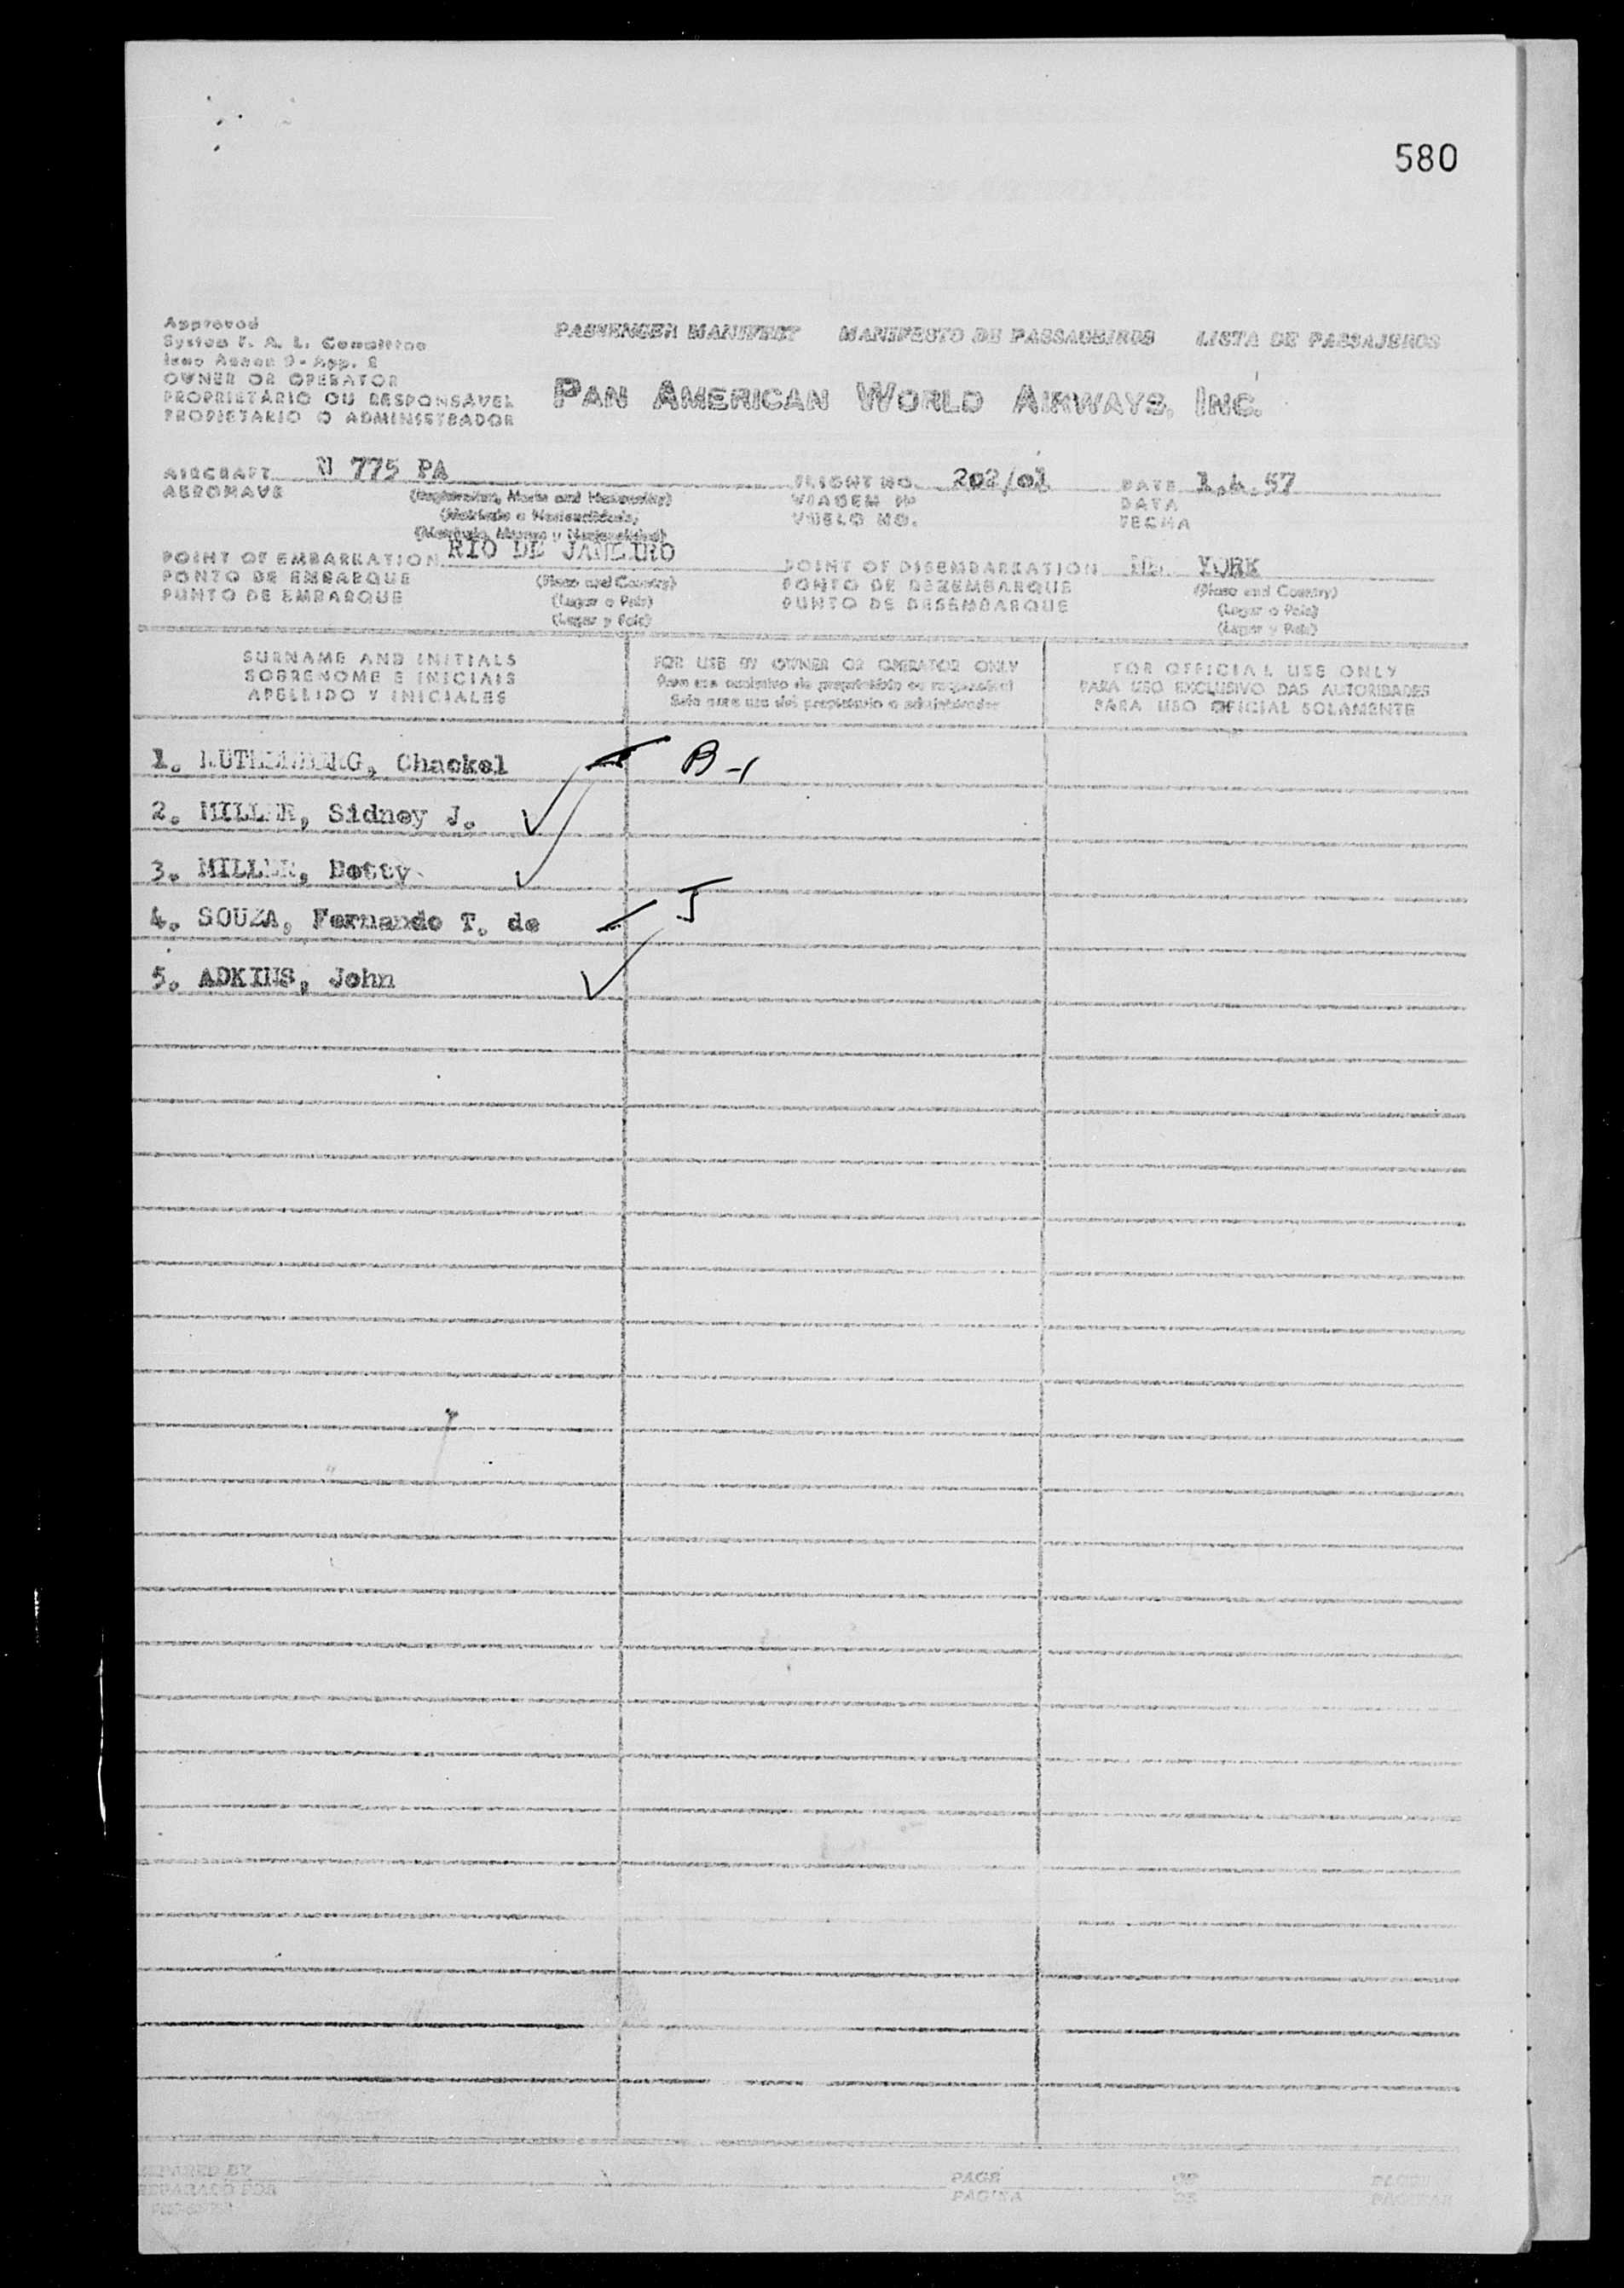 580
Approved
System F. A. L. Committee
Icao Annex 9 - App. 2
OWNER OR OPERATOR
PROPRIETÁRIO OU RESPONSÁVEL
PROPIETARIO O ADMINISTRADOR
PASSENGER MANIFEST MANIFESTO DE PASSAGEIROS LISTA DE PASSAJEROS
PAN AMERICAN WORLD AIRWAYS, INC.
AIRCRAFT N 775 PA
AERONAVE
(Registration, Marks and Nationality)
(Matrícula e Nacionalidade)
(Matrícula, Marcas y Nacionalidad)
FLIGHT NO. 202/01
VIAGEM Nº
VUELO NO.
DATE 1.4.57
DATA
FECHA
POINT OF EMBARKATION RIO DE JANEIRO
PONTO DE EMBARQUE
PUNTO DE EMBARQUE
(Place and Country)
(Lugar e País)
(Lugar y País)
POINT OF DISEMBARKATION YORK
PONTO DE DEZEMBARQUE
PUNTO DE DESEMBARQUE
(Place and Country)
(Lugar e País)
(Lugar y País)
SURNAME AND INITIALS
SOBRENOME E INICIAIS
APELLIDO Y INICIALES
FOR USE BY OWNER OR OPERATOR ONLY
Para uso exclusivo do proprietário ou responsável
Solo para uso del propietario o administrador
FOR OFFICIAL USE ONLY
PARA USO EXCLUSIVO DAS AUTORIDADES
PARA USO OFICIAL SOLAMENTE
1. Chackel B-1
2. MILLER, Sidney J.
3. MILLER, Betty
4. SOUZA, Fernando T. de
5. ADKINS, John
PREPARED BY
PREPARADO POR
PAGE
PAGINA
OF
DE